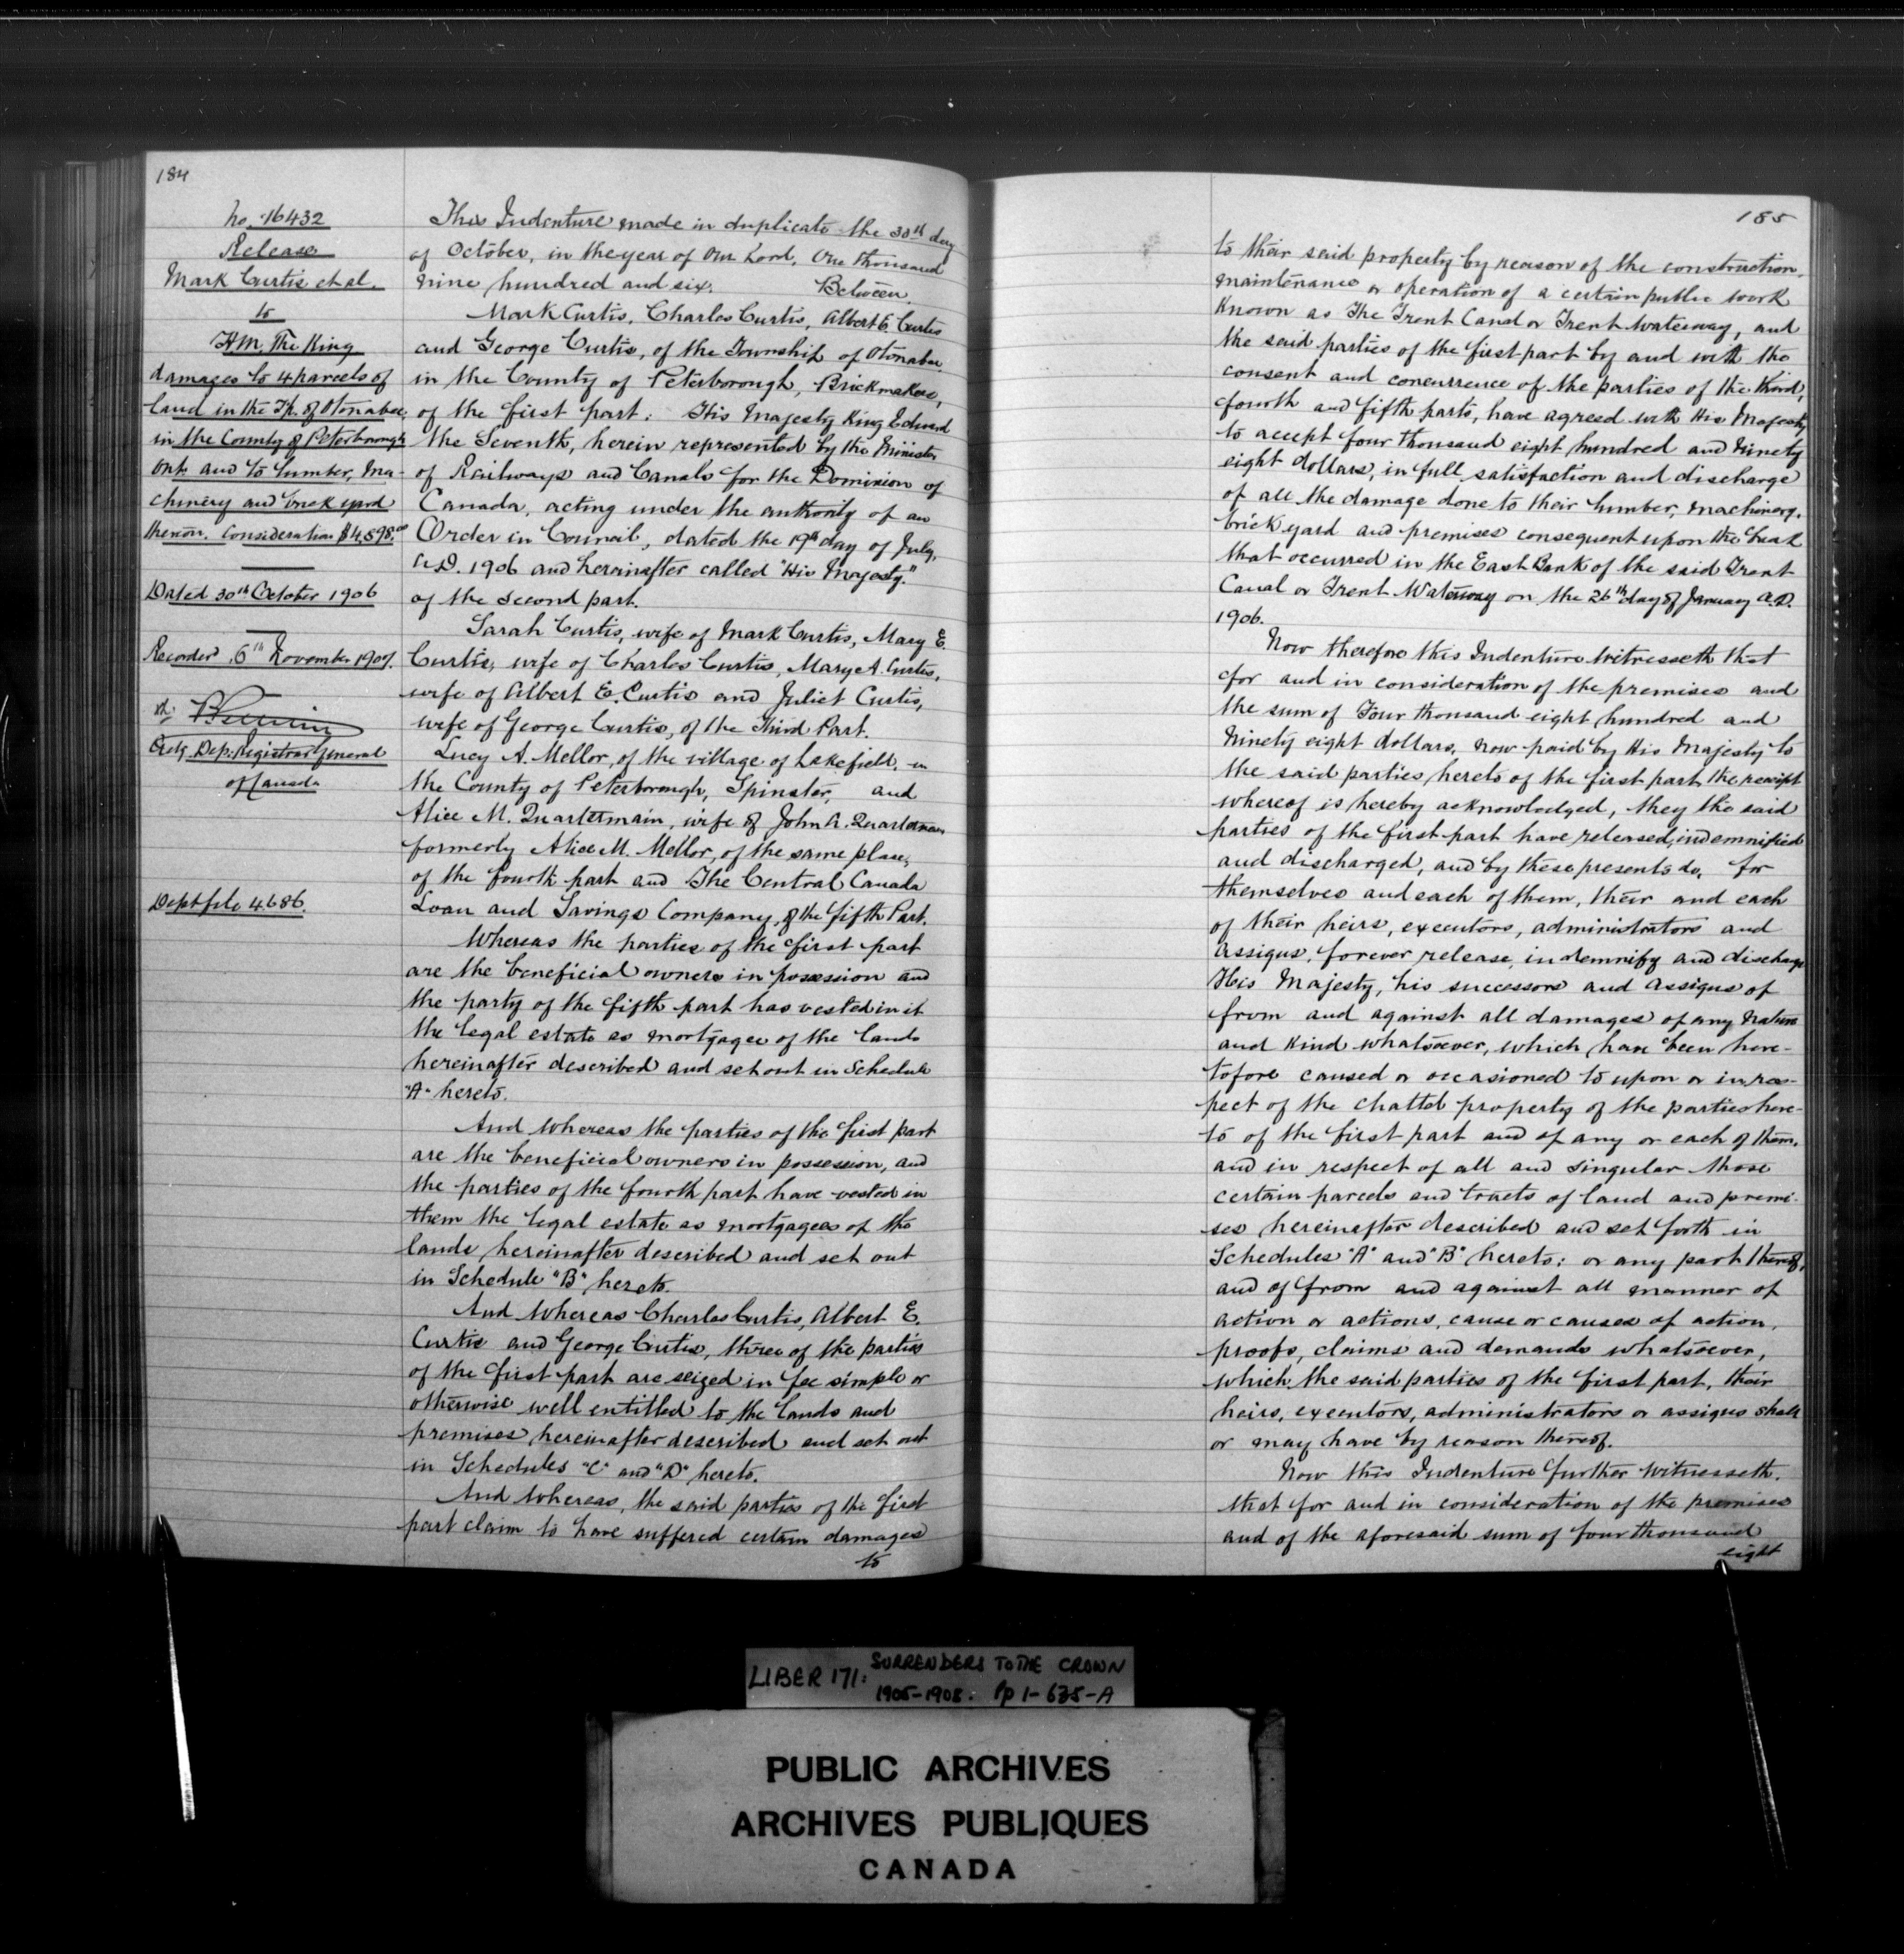 184
No. 16432
Release
Mark Curtis et al.
to
H.M. The King
damages to 4 parcels of
land in the Tp. of Otonabee,
in the County of Peterborough
Ont. and to lumber, ma-
chinery and brick yard
thereon. Consideration $4,898.00
Dated 30th October 1906
Recorded 6th November 1907.
Actg. Dep. Registrar General
of Canada
Dept file 4686.
This Indenture made in duplicate the 30th day
of October, in the year of Our Lord, One thousand
nine hundred and six. Between
Mark Curtis, Charles Curtis, Albert E. Curtis
and George Curtis, of the Township of Otonabee
in the County of Peterborough, Brickmakers,
of the first part: His Majesty King Edward
the Seventh, herein represented by the Minister
of Railways and Canals for the Dominion of
Canada, acting under the authority of an
Order in Council, dated the 19th day of July,
A.D. 1906 and hereinafter called "His Majesty"
of the second part.
Sarah Curtis, wife of Mark Curtis, Mary E.
Curtis, wife of Charles Curtis, Mary A. Curtis,
wife of Albert E. Curtis and Juliet Curtis,
wife of George Curtis, of the Third Part.
Lucy A. Mellor, of the village of Lakefield, in
the County of Peterborough, Spinster, and
Alice M. Quartermain, wife of John A. Quartermain
formerly Alice M. Mellor, of the same place,
of the fourth part and The Central Canada
Loan and Savings Company, of the fifth Part.
Whereas the parties of the first part
are the beneficial owners in possession and
the party of the fifth part has vested in it
the legal estate as mortgagee of the lands
hereinafter described and set out in Schedule
"A" hereto.
And whereas the parties of the first part
are the beneficial owners in possession, and
the parties of the fourth part have vested in
them the legal estate as mortgagees of the
lands, hereinafter described and set out
in Schedule "B" hereto.
And whereas Charles Curtis, Albert E.
Curtis and George Curtis, three of the parties
of the first part are seized in fee simple or
otherwise well entitled to the lands and
premises hereinafter described and set out
in Schedules "C" and "D" hereto.
And whereas, the said parties of the first
part claim to have suffered certain damages
to
185
to their said property by reason of the construction,
maintenance or operation of a certain public work
known as The Trent Canal or Trent Waterway, and
the said parties of the first part by and with the
consent and concurrence of the parties of the third,
fourth and fifth parts, have agreed with His Majesty
to accept four thousand eight hundred and ninety
eight dollars, in full satisfaction and discharge
of all the damage done to their lumber, machinery,
brick yard and premises consequent upon the break
that occurred in the East Bank of the said Trent
Canal or Trent Waterway on the 26th day of January A.D.
1906.
Now therefore this Indenture Witnesseth that
for and in consideration of the premises and
the sum of Four thousand eight hundred and
Ninety eight dollars, now paid by His Majesty to
the said parties hereto of the first part, the receipt
whereof is hereby acknowledged, they the said
parties of the first part have released, indemnified
and discharged, and by these presents do, for
themselves and each of them, their and each
of their heirs, executors, administrators and
assigns, forever release, indemnify and discharge
His Majesty, his successors and assigns of
from and against all damages of any nature
and kind whatsoever, which have been here-
tofore caused or occasioned to upon or in res-
pect of the chattel property of the parties here-
to of the first part and of any or each of them,
and in respect of all and singular those
certain parcels and tracts of land and premi-
ses hereinafter described and set forth in
Schedules "A" and "B" hereto: or any part thereof,
and of from and against all manner of
action or actions, cause or causes of action,
proofs, claims and demands whatsoever,
which the said parties of the first part, their
heirs, executors, administrators or assigns shall
or may have by reason thereof.
Now this Indenture further Witnesseth,
that for and in consideration of the premises
and of the aforesaid sum of four thousand
eight
LIBER 171: SURRENDERS TO THE CROWN
1905-1908. Pp 1-635-A
PUBLIC ARCHIVES
ARCHIVES PUBLIQUES
CANADA